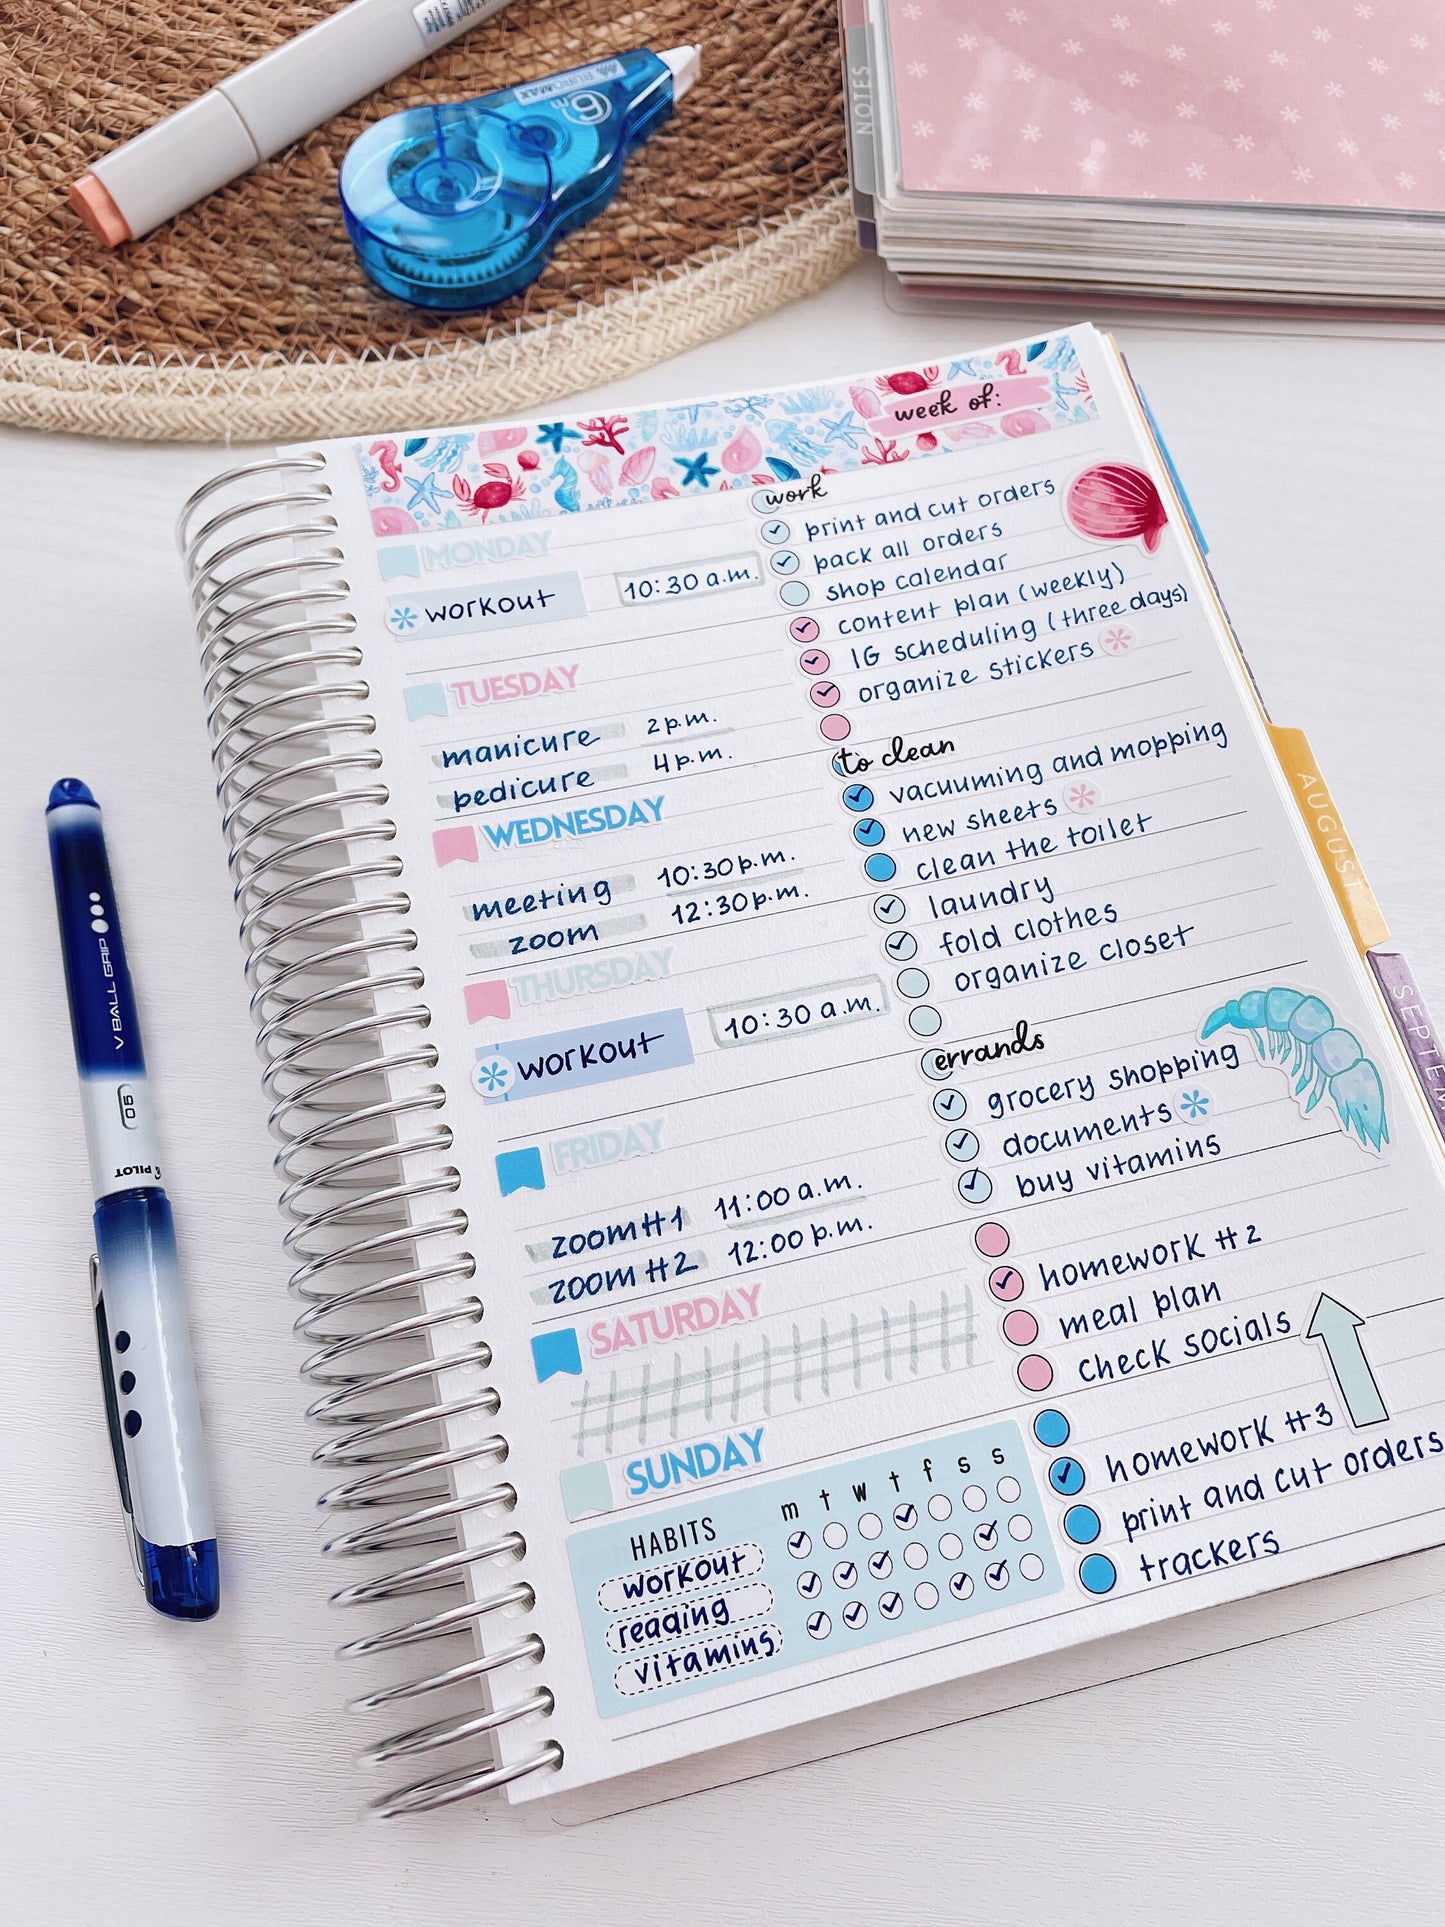 6m
PUROMAX
NOTES
week of:
MONDAY
workout 10:30 a.m.
TUESDAY
manicure 2 p.m.
pedicure 4 p.m.
WEDNESDAY
meeting 10:30 p.m.
zoom 12:30 p.m.
THURSDAY
workout 10:30 a.m.
FRIDAY
zoom #1 11:00 a.m.
zoom #2 12:00 p.m.
SATURDAY
SUNDAY
HABITS m t w t f s s
workout
reading
vitamins
work
print and cut orders
pack all orders
shop calendar
content plan (weekly)
IG scheduling (three days)
organize stickers
to clean
vacuuming and mopping
new sheets
clean the toilet
laundry
fold clothes
organize closet
errands
grocery shopping
documents
buy vitamins
homework #2
meal plan
check socials
homework #3
print and cut orders
trackers
AUGUST
SEPTEM
V BALL GRIP
05
PILOT